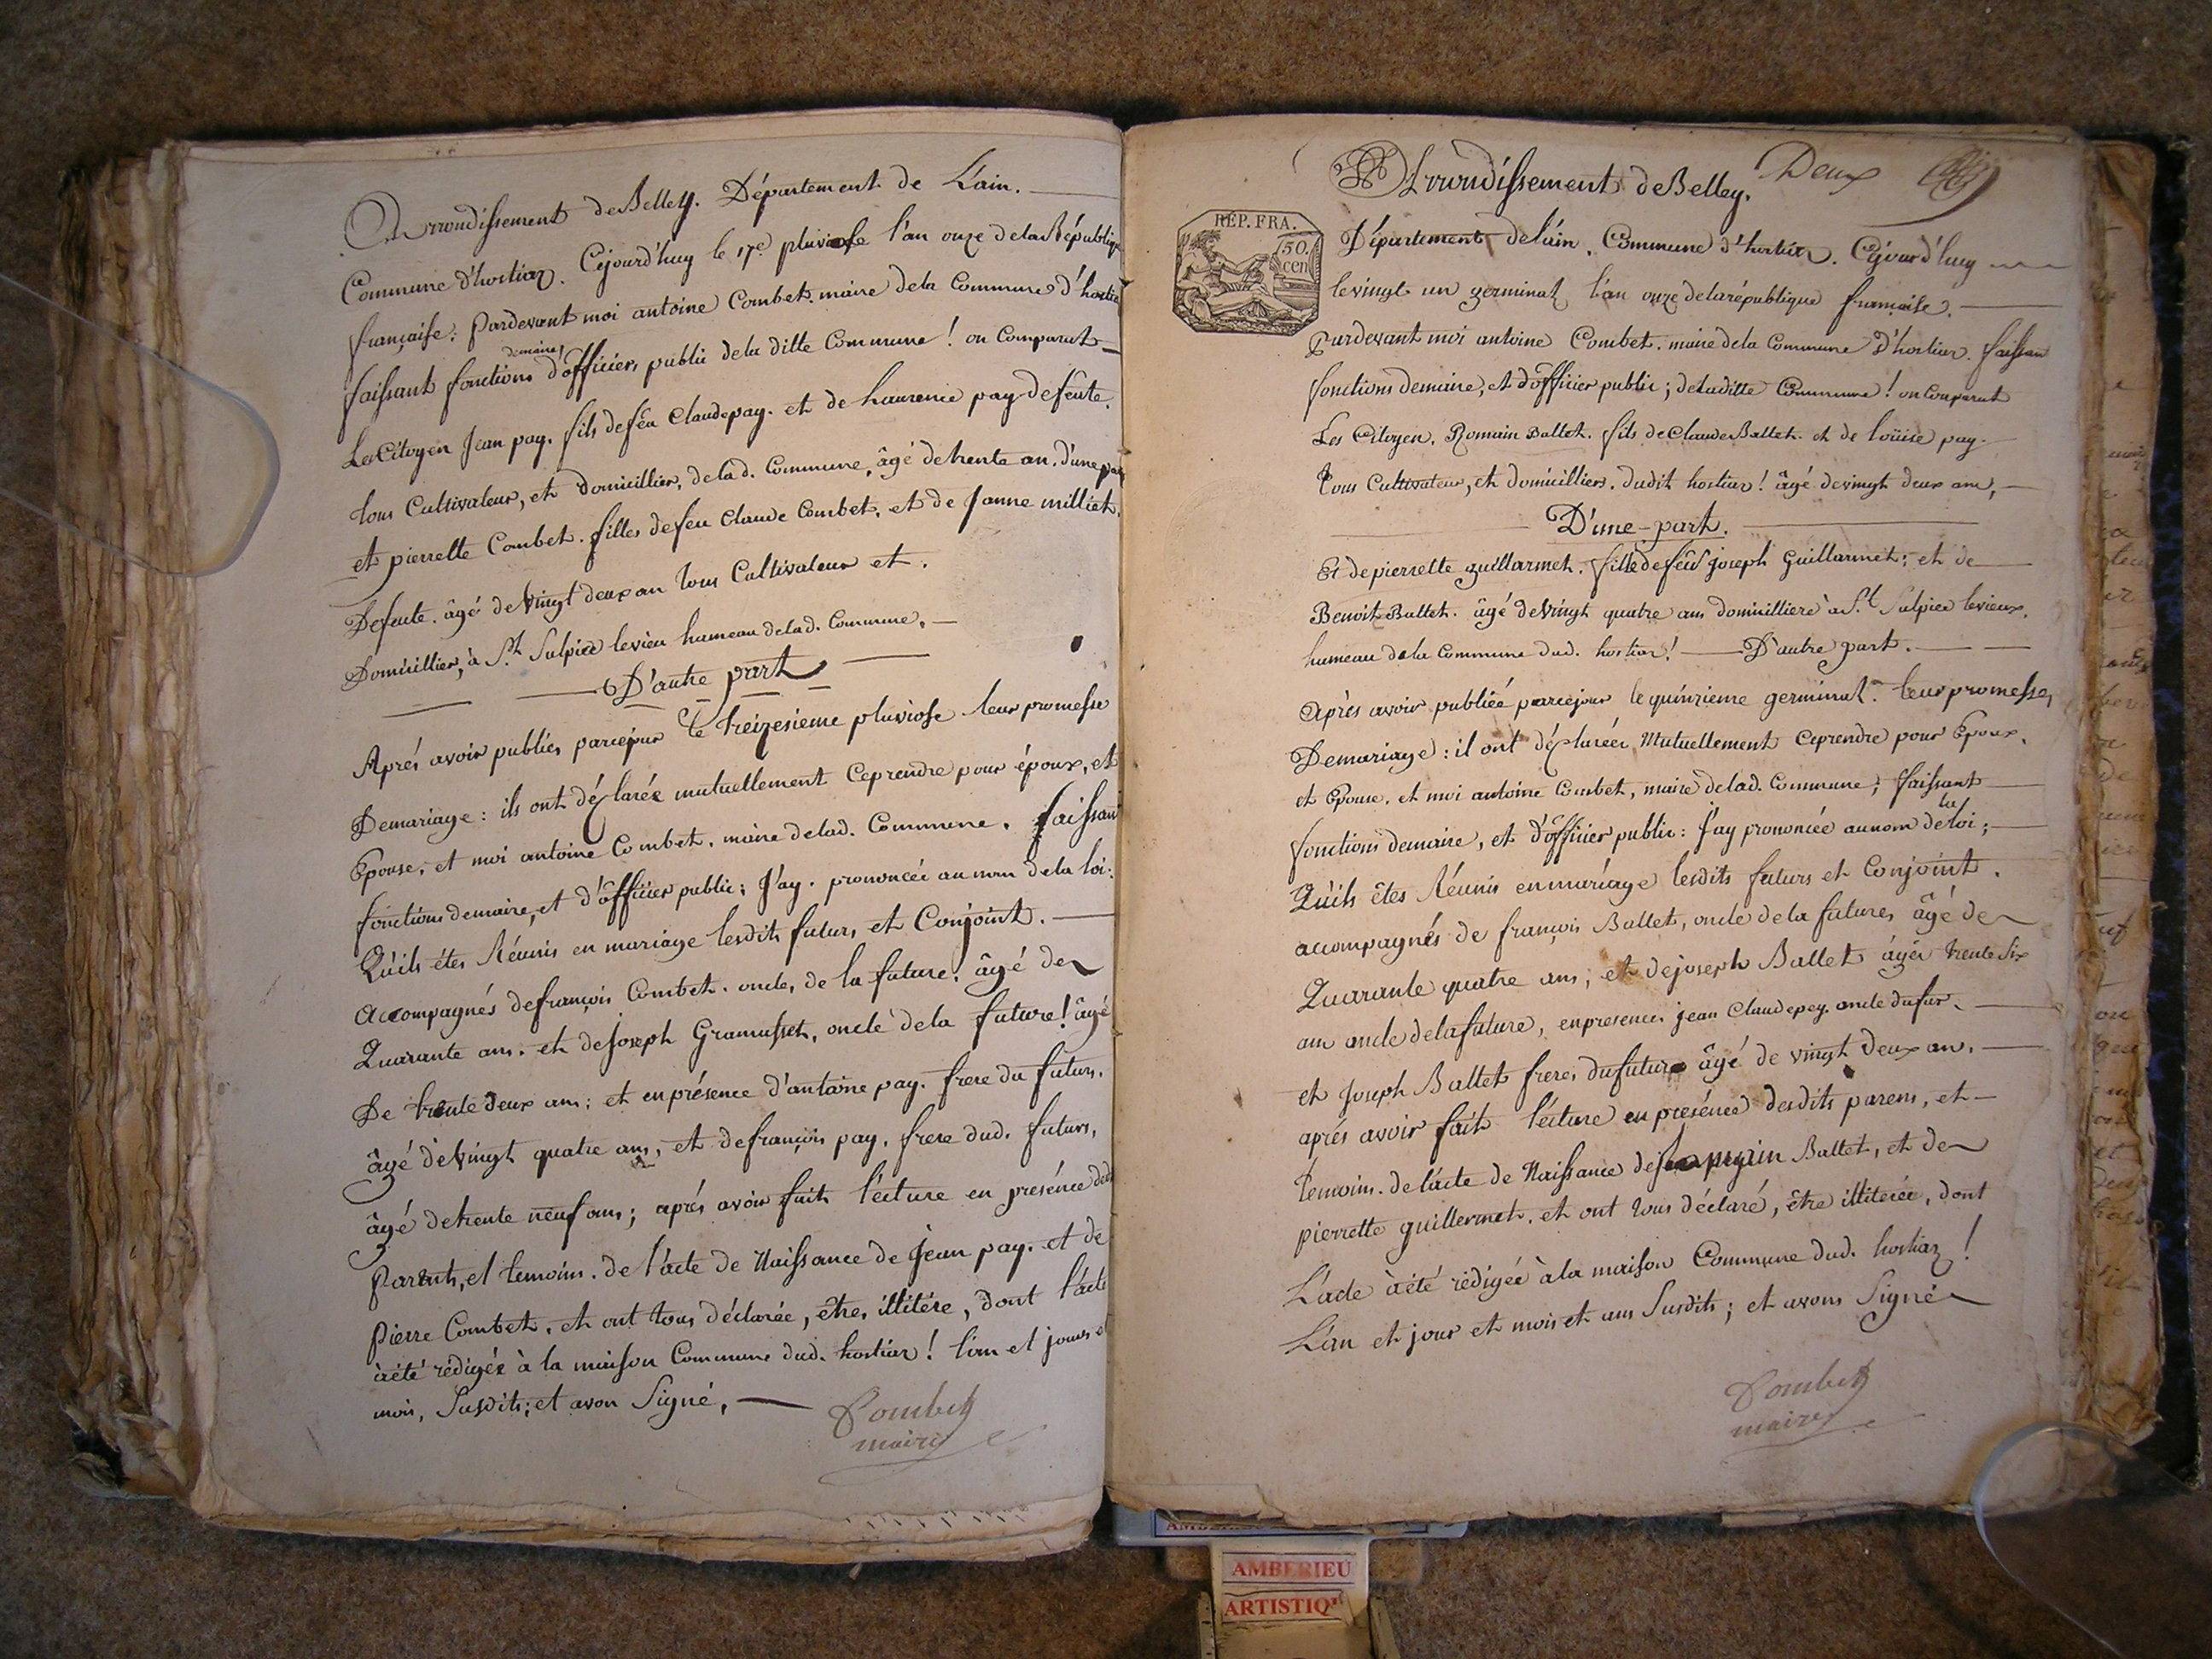 Arrondissement de Belley. Département de L'ain.
Commune d'hostiaz. Cejourd'huy le 17e. pluviose l'an onze de la Républiq
française: Pardevant moi antoine Combet. maire dela Commune d'hostia
demaire,
faissant fonctions d'officier, public dela ditte Commune! on Comparut
Les Citoyen Jean pay. fils de feu Claude pay. et de Laurence pay defeute.
tous Cultivateur, et domicillier, delad. Commune, âgé detrente an. d'une par
et pierrette Combet. filles defeu Claude Combet, et de Janne milliet,
Defeute. âgé de vingt deux an tous Cultivateur et.
Domicillier, à St. Sulpice levieu hameau delad. Commune,
D'autre part
Aprés avoir publiés, parcejour le treizesieme pluviose leur promesse
Demariage: ils ont déclarée mutuellement Ceprendre pour époux, et
Epouse, et moi antoine Combet, maire delad. Commune, faissant
fonctions demaire, et d'officier public; J'ay. prononcée au nom dela loi:
Qu'ils étes Réunis en mariage lesdits futurs et Conjoint.
accompagnés defrançois Combet. oncle, de la future, âgé de
Quarante ans. et deJoseph Gramusset, oncle dela future! âgé
De trente deux ans; et en présence d'antoine pay. frere du futurs.
âgé devingt quatre ans, et defrançois pay. frere dud. futurs,
âgé detrente neuf ans; aprés avoir fait l'écture en présénce desd
Parents, et temoins. de l'acte de Naissance de Jean pay. et de
Pierre Combet, et ont tous déclarée, être, illitére, dont l'acte
àété rédigée à la maison Commune dud. hostiaz! l'an et jours et
mois, Susdits; et avon Signé,
Combet
maire
Deux
Arrondissement deBelley,
REP. FRA.
50.
cen
Département del'ain, Commune d'hostiaz. Cejourd'huy
levingt un germinal l'an onze delarépublique française.
Pardevant moi antoine Combet. maire dela Commune d'hostiaz. faissan
fonctions demaire, et d'officier public; deladitte Commune! on Comparut
Les Citoyen. Romain Ballet. fils de Claude Ballet. et de loüise pay.
tous Cultivateur, et domicilliers. dudit hostiaz! âgé devingt deux ans,
D'une-part.
Et depierrette guillarmet. fille defeu joseph Guillarmet; et de
Benoit Ballet. âgé devingt quatre ans domicilliere à St. Sulpice levieux.
hameau dela Commune dud. hostiaz! D'autre part.
Aprés avoir publiéé parcejour le quinzieme germinal. leur promesse,
Demariage: il ont déclarée Mutuellement Ceprendre pour Epoux.
et Epouse, et moi antoine Combet, maire delad. Commune; faissant
fonctions demaire, et d'officier public: J'ay prononcée aunom de la loi;
Qu'ils êtes Réunis enmariage lesdits futurs et Conjoint.
accompagnés de françois Ballet, oncle dela future, âgé de
Quarante quatre ans; et dejoseph Ballet âgée trente six
ans oncle delafuture, enpresence jean Claude pey. oncle dufur.
et Joseph Ballet frere, dufuture âgé de vingt deux an.
aprés avoir fait l'écture en presénce desdits parens, et
temoins. de l'acte de Naissance de Ballet, et de
pierrette guillermet. et ont tous déclaré, être illiterée, dont
L'acte àété rédigée àla maison Commune dud. hostiaz!
L'an et jour et mois et ans Susdits; et avons Signé
Combet
maire
AMBERIEU
ARTISTIQ